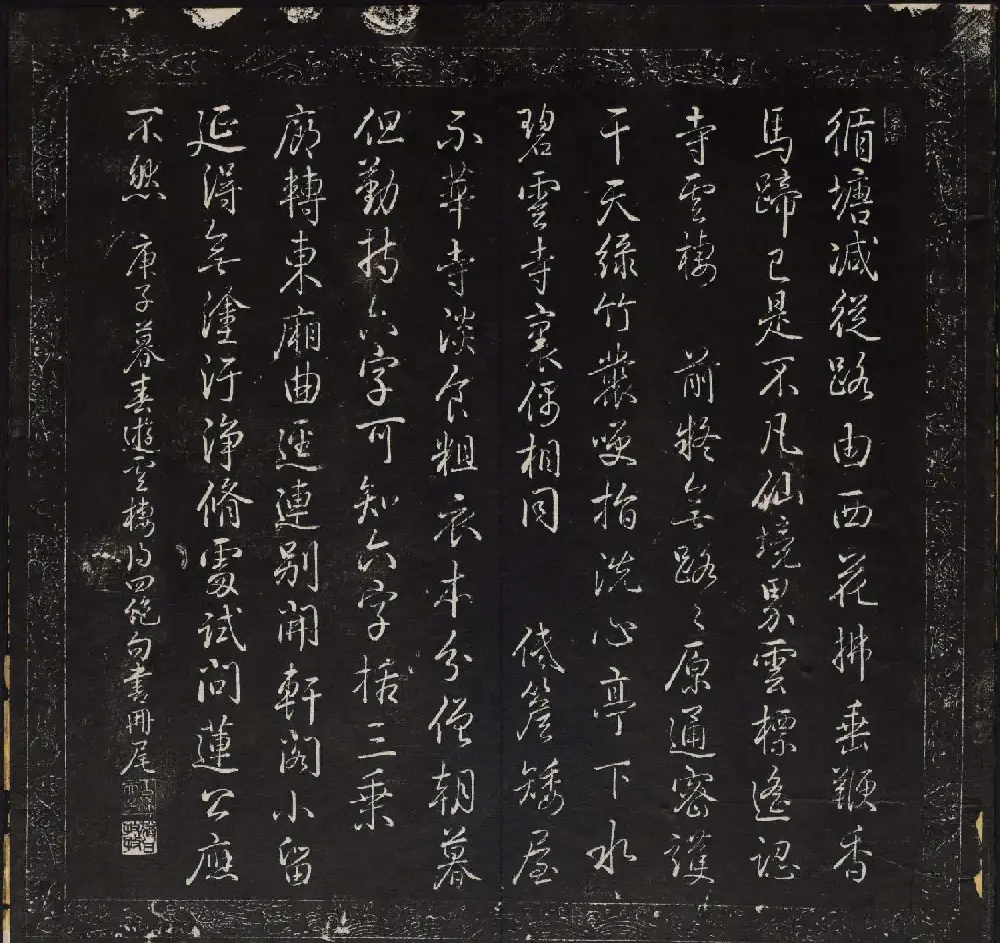 循塘減從路由西花拂垂鞭香
馬蹄已是不凡仙境界雲標遙認
寺雲棲　前疑無路路原通密護
干天綠竹叢嘆指洗心亭下水
碧雲寺裏偶相同　低簷矮屋
示華寺淡食粗衣本分僧朝暮
但勤持六字可知六字括三乘
廊轉東廂曲逕連別開軒閣小留
延得無塗汙淨脩處試問蓮公應
不然　庚子暮春遊雲棲得四絕句書冊尾